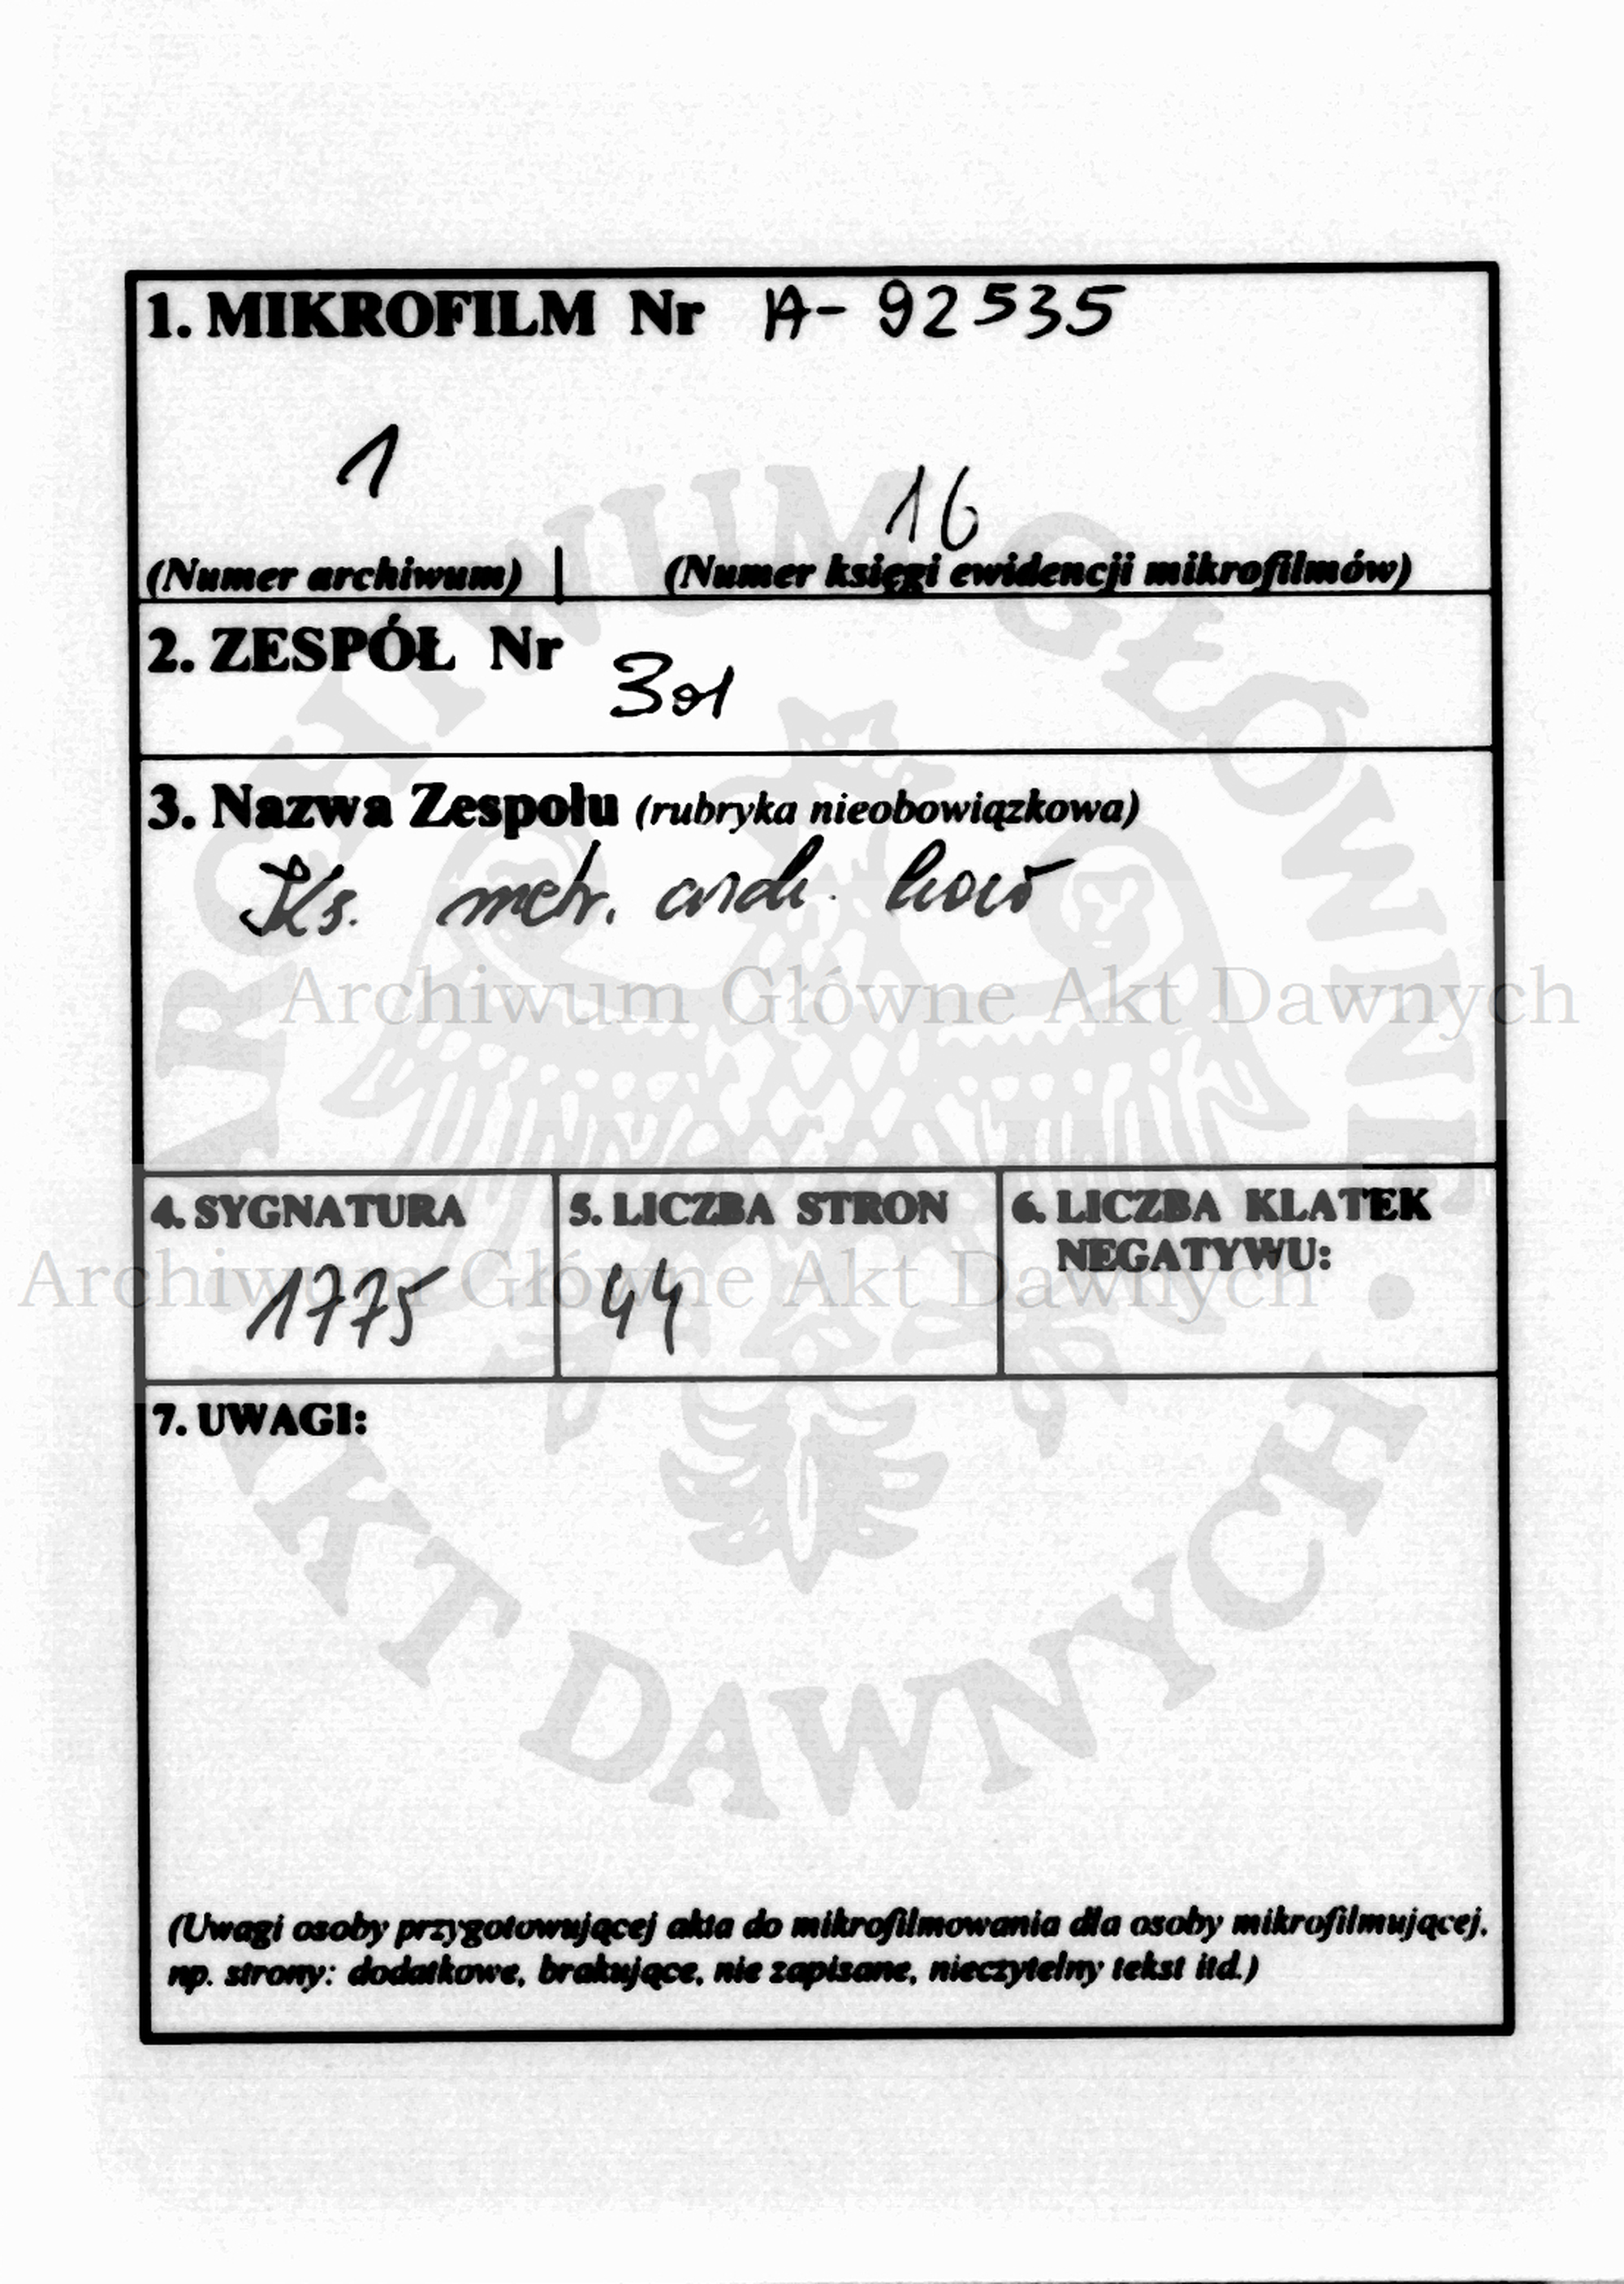 1. MIKROFILM Nr A-92535
1
16
(Numer archiwum) | (Numer księgi ewidencji mikrofilmów)
2. ZESPÓŁ Nr 301
3. Nazwa Zespołu (rubryka nieobowiązkowa)
Ks. metr. arch.
Archiwum Główne Akt Dawnych
4. SYGNATURA
1775
5. LICZBA STRON
44
6. LICZBA KLATEK
NEGATYWU:
Archiwum Główne Akt Dawnych
7. UWAGI:
(Uwagi osoby przygotowującej akta do mikrofilmowania dla osoby mikrofilmującej,
np. strony: dodatkowe, brakujące, nie zapisane, nieczytelny tekst itd.)
ARCHIWUM GŁÓWNE • AKT DAWNYCH •